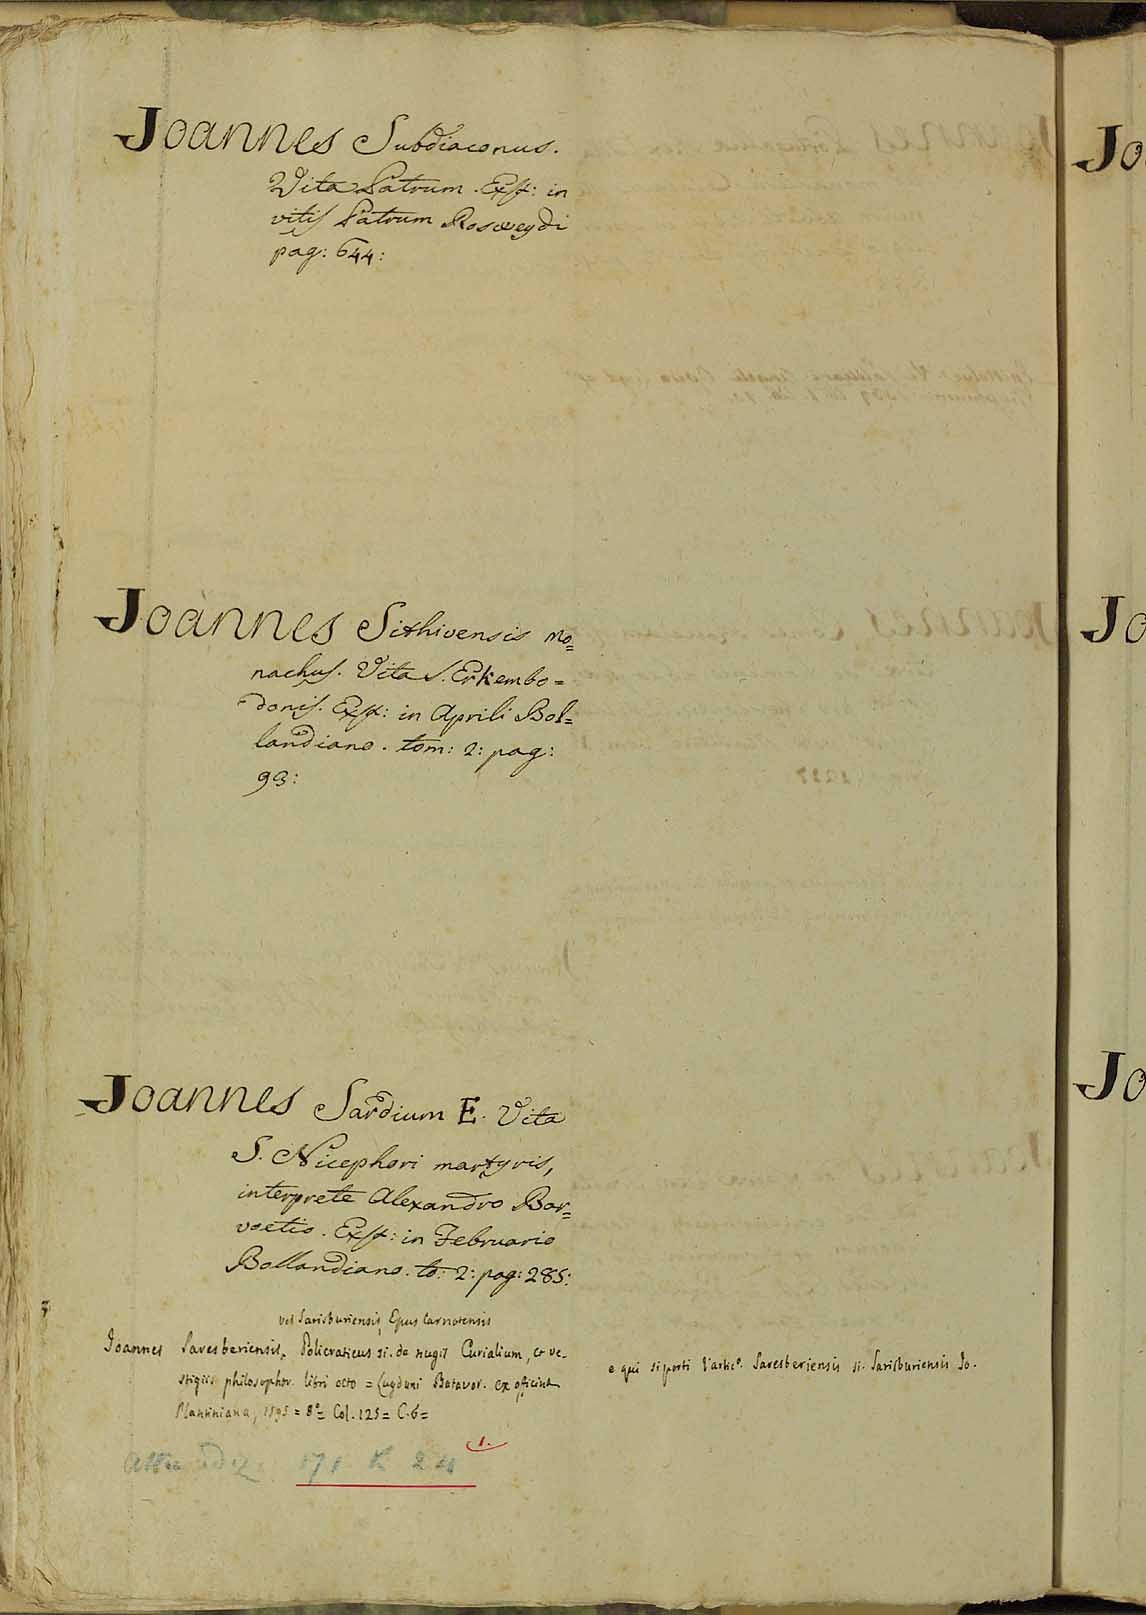 Joannes Subdiaconus.
Vita Patrum. Exst: in
vitis Patrum Rosweydi
pag: 644:
Joannes Sithivensis mo=
nachus. Vita S. Erkembo=
donis. Exst: in Aprili Bol=
landiano. tom: 2: pag:
93:
Joannes Sardium E. Vita
S. Nicephori martyris,
interprete Alexandro Bar=
voetio. Exst: in Februario
Bollandiano. to: 2: pag: 285:
vel Sarisburiensis Epus Carnotensis
Joannes Saresberiensis, Policraticus si. de nugis Curialium, et ve-
stigiis philosophor. libri octo = Lugduni Batavor. ex officina
Plantiniana, 1595 = 8º = Col. 125 = C. 6 =
e qui si porti l'artic.º Saresberiensis si. Sarisburiensis Jo.
Altra ediz. 171 K 24
1.
Jo
Jo
Jo